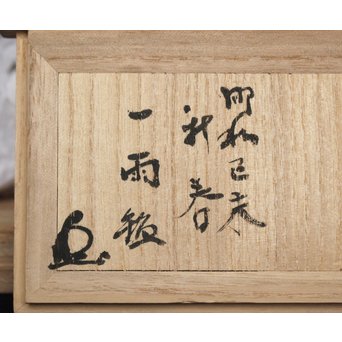 昭和己未
新春
一雨題